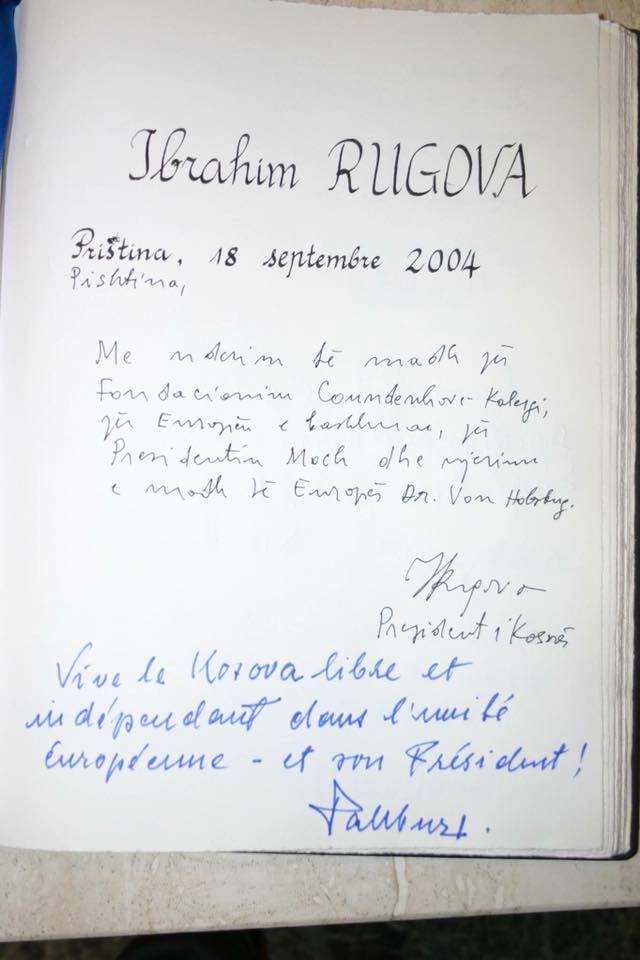 Ibrahim RUGOVA
Priština, 18 septembre 2004
Pishtina,
Me nderim të madh për
Fondacionim Coundenhove-Kalergi,
për Europën e bashkuar, për
Presidentin Moch dhe njeriun
e madh të Europës Dr. Von Habsburg.
IRugova
President i Kosovës
Vive le Kosova libre et
indépendant dans l'unité
Européenne - et son Président !